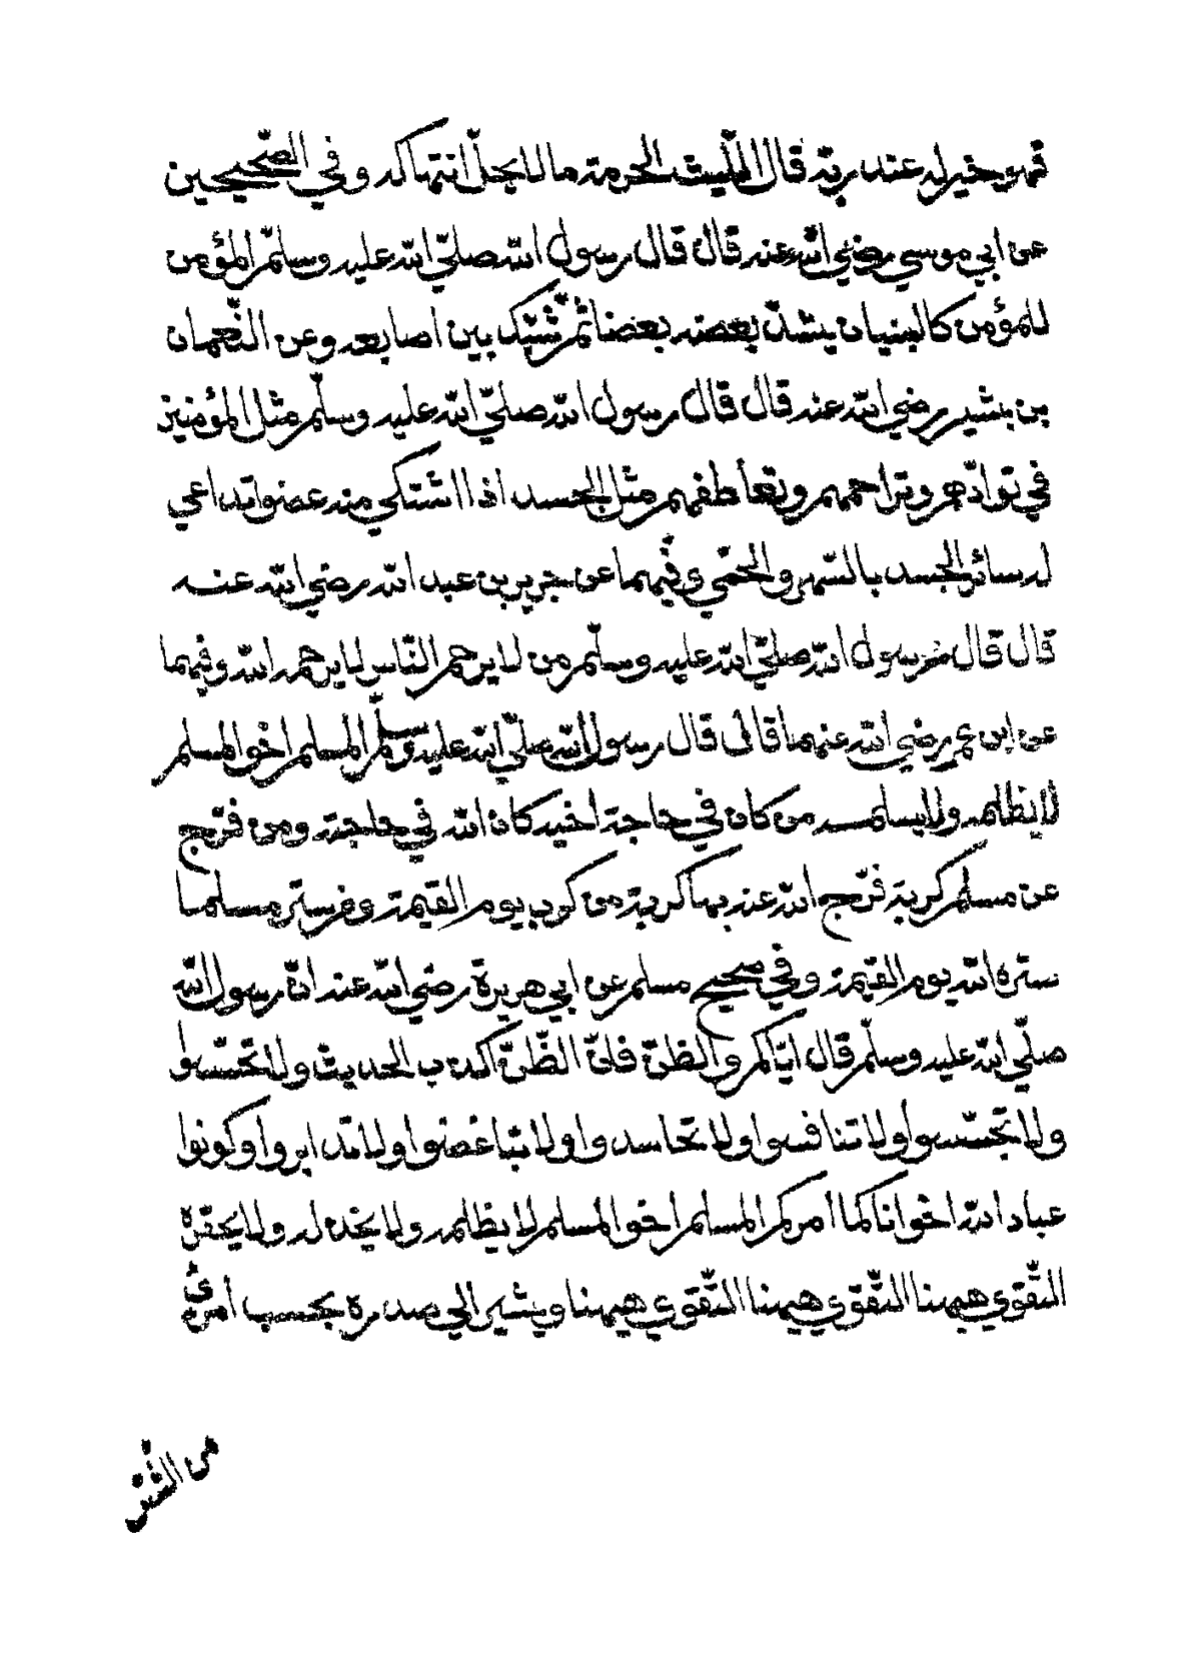 فهو خير له عند ربه قال الليث الحرمة مالا يحل انتهاكه وفي الصّحيحين
عن ابي موسي رضي الله عنه قال قال رسول الله صلّي الله عليه وسلّم المؤمن
للمؤمن كالبنيان يشدّ بعضه بعضا ثمّ شبّك بين اصابعه وعن النّعمان
بن بشير رضي الله عنه قال قال رسول الله صلّي الله عليه وسلّم مثل المؤمنين
في توادّهم وتراحمهم وتعاطفهم مثل الجسد اذا اشتكي منه عضو تداعي
له سائر الجسد بالسّهر والحمّي وفيهما عن جرير بن عبد الله رضي الله عنه
قال قال رسول الله صلّي الله عليه وسلّم من لا يرحم النّاس لا يرحمه الله وفيهما
عن ابن عمر رضي الله عنهما قال قال رسول الله صلّي الله عليه وسلّم المسلم اخو المسلم
لا يظلمه ولا يسلمه من كان في حاجة اخيه كان الله في حاجته ومن فرّج
عن مسلم كربة فرّج الله عنه بها كربة من كرب يوم القيمة ومن ستر مسلما
ستره الله يوم القيمة وفي صحيح مسلم عن ابي هريرة رضي الله عنه انّ رسول الله
صلّي الله عليه وسلّم قال ايّاكم والظنّ فانّ الظّنّ اكذب الحديث ولا تحسّسوا
ولا تجسّسوا ولا تنافسوا ولا تحاسدوا ولا تباغضوا ولا تدابروا وكونوا
عباد الله اخوانا كما أمركم المسلم اخو المسلم لا يظلمه ولا يخذله ولا يحقره
التّقوي ههنا التّقوي ههنا التّقوي ههنا ويشير الي صدره بحسب أمرئ
من الشّر